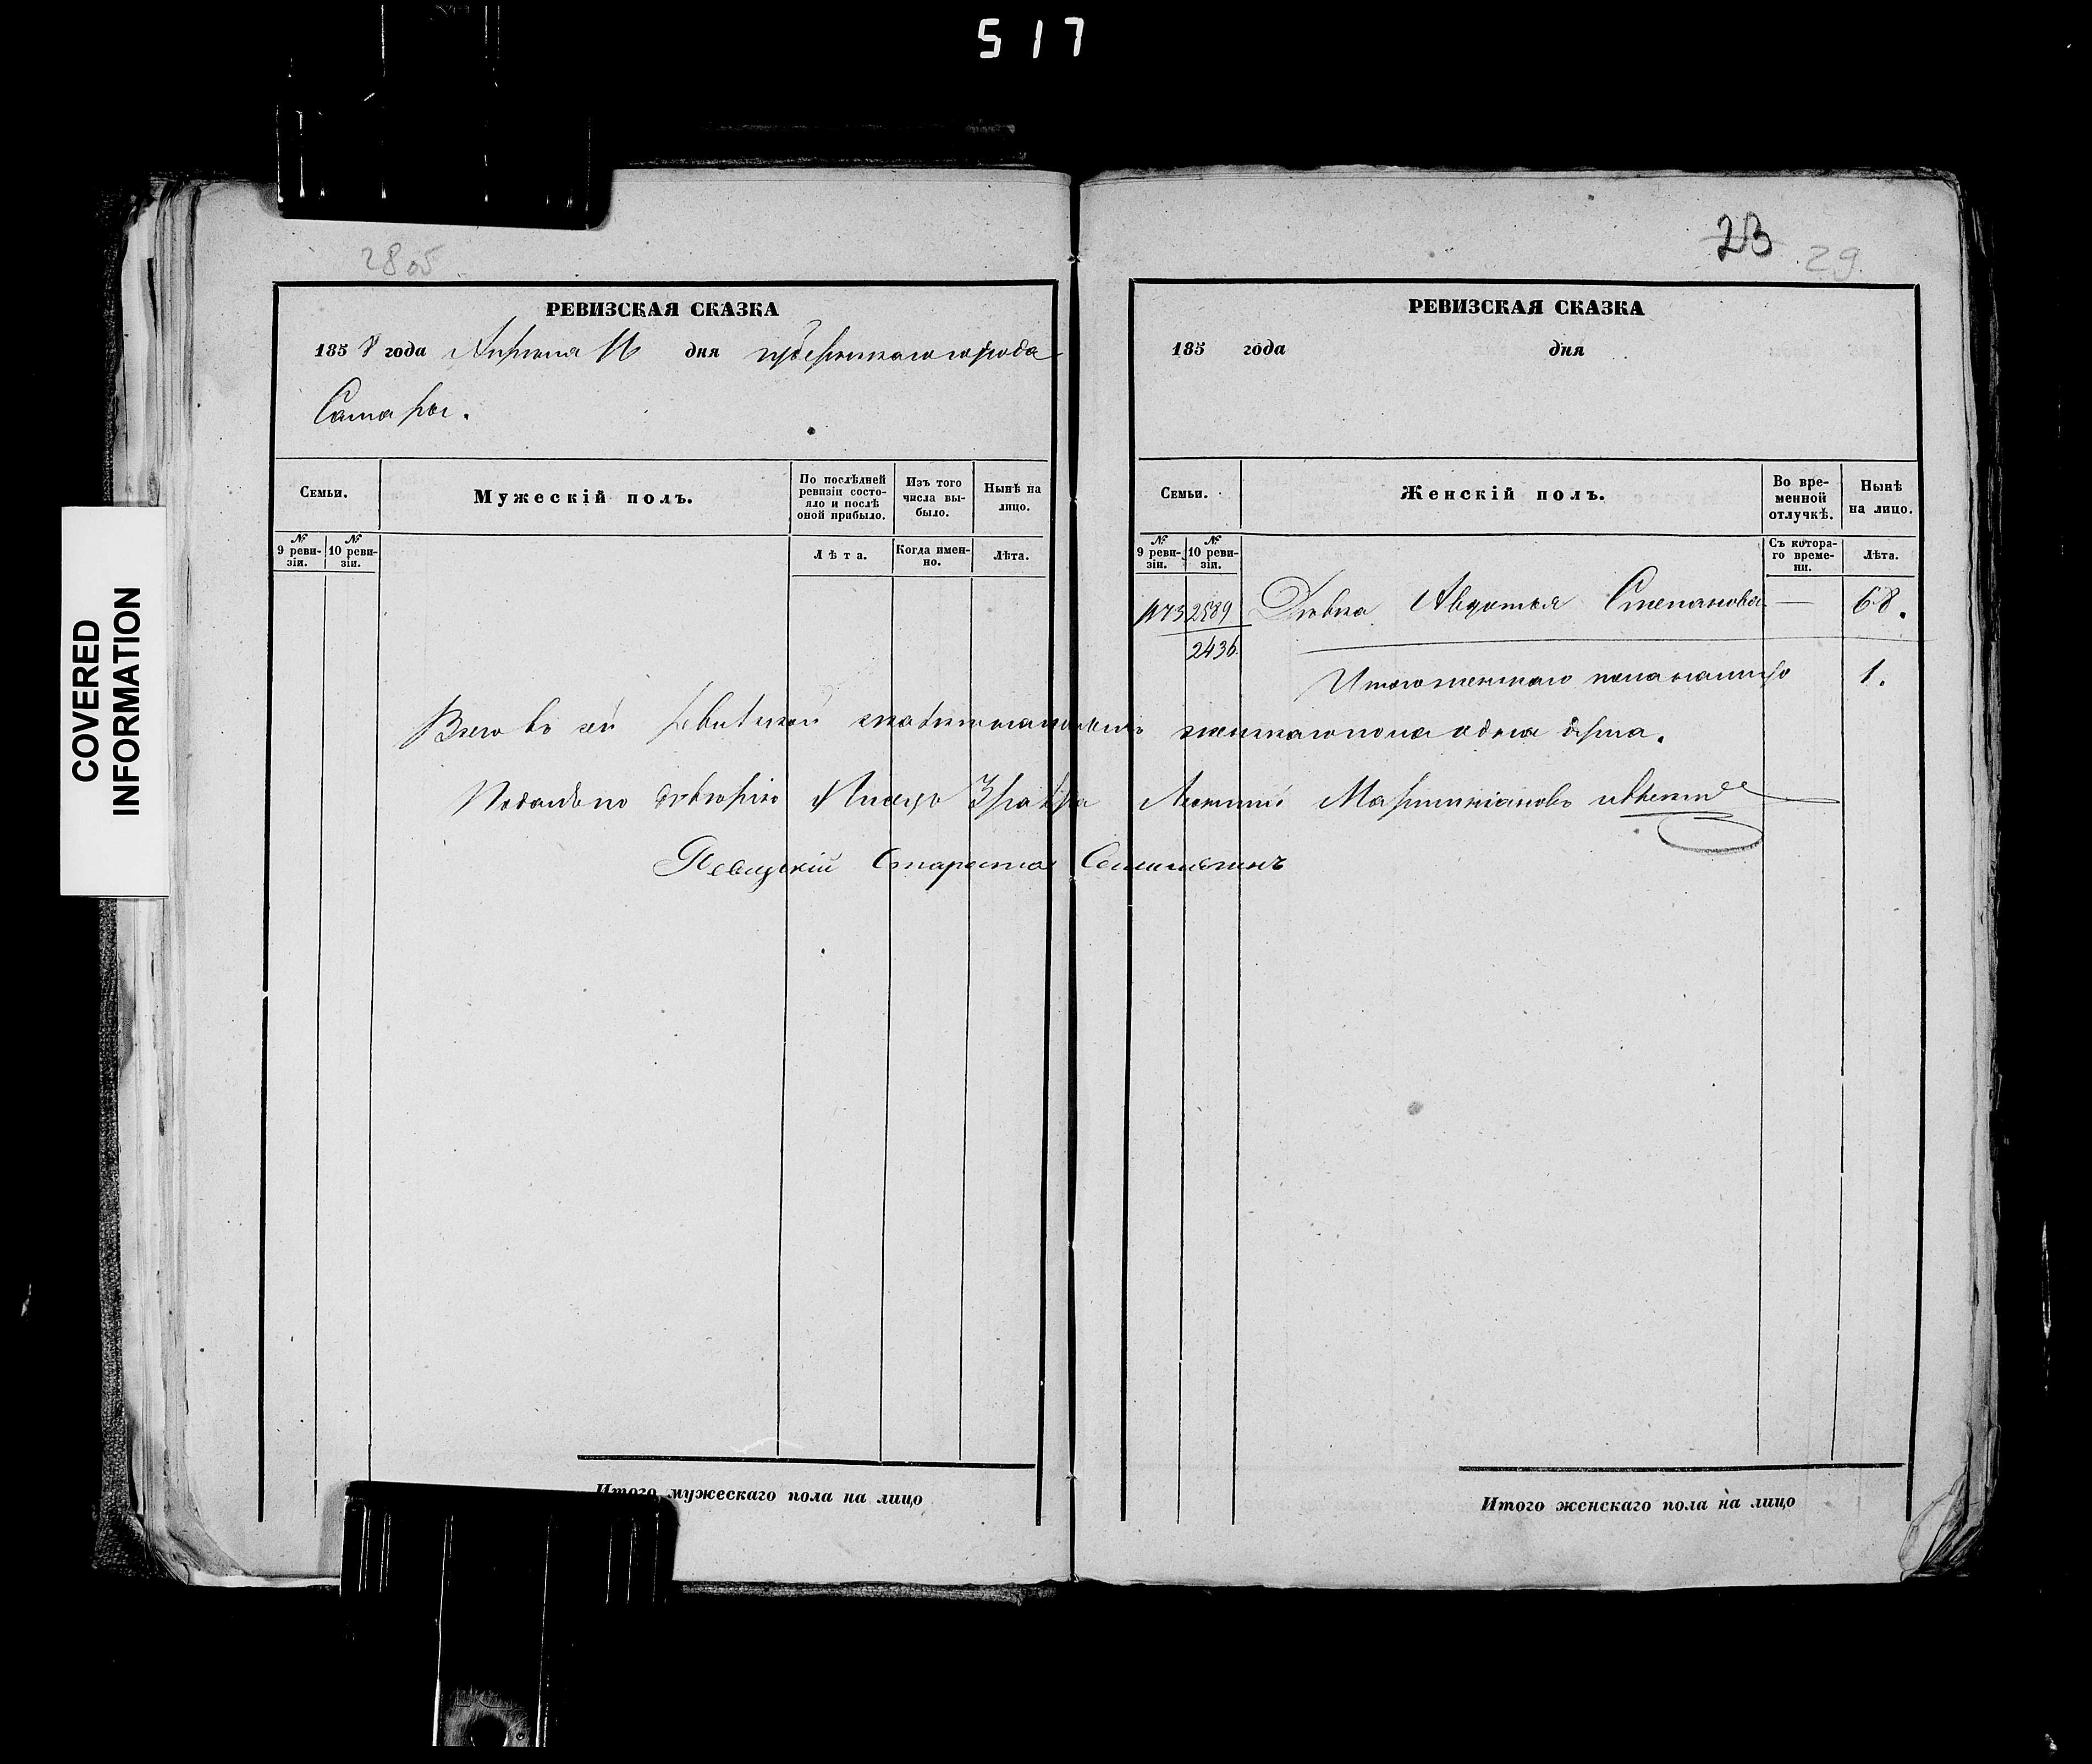 517
COVERED
INFORMATION
28 об
РЕВИЗСКАЯ СКАЗКА
1858 года Апреля дня губернскаго города
Самары.
Семьи.
Мужескій полъ.
По послѣдней ревизіи состояло и послѣ оной прибыло.
Изъ того числа выбыло.
Нынѣ на лицо.
№ 9 ревизіи.
№ 10 ревизіи.
Лѣта.
Когда именно.
Лѣта.
23 29
РЕВИЗСКАЯ СКАЗКА
185 года дня
Семьи.
Женскій полъ.
Во временной отлучкѣ.
Нынѣ на лицо.
№ 9 ревизіи.
№ 10 ревизіи.
Съ котораго времени.
Лѣта.
2589 Дѣвка Авдотья Степанова — 68.
2436.
Итого женскаго пола на лицо 1.
Всего въ сей ревизской сказкѣ женскаго пола одна душа.
Мартиніановъ
Староста
Итого мужескаго пола на лицо
Итого женскаго пола на лицо